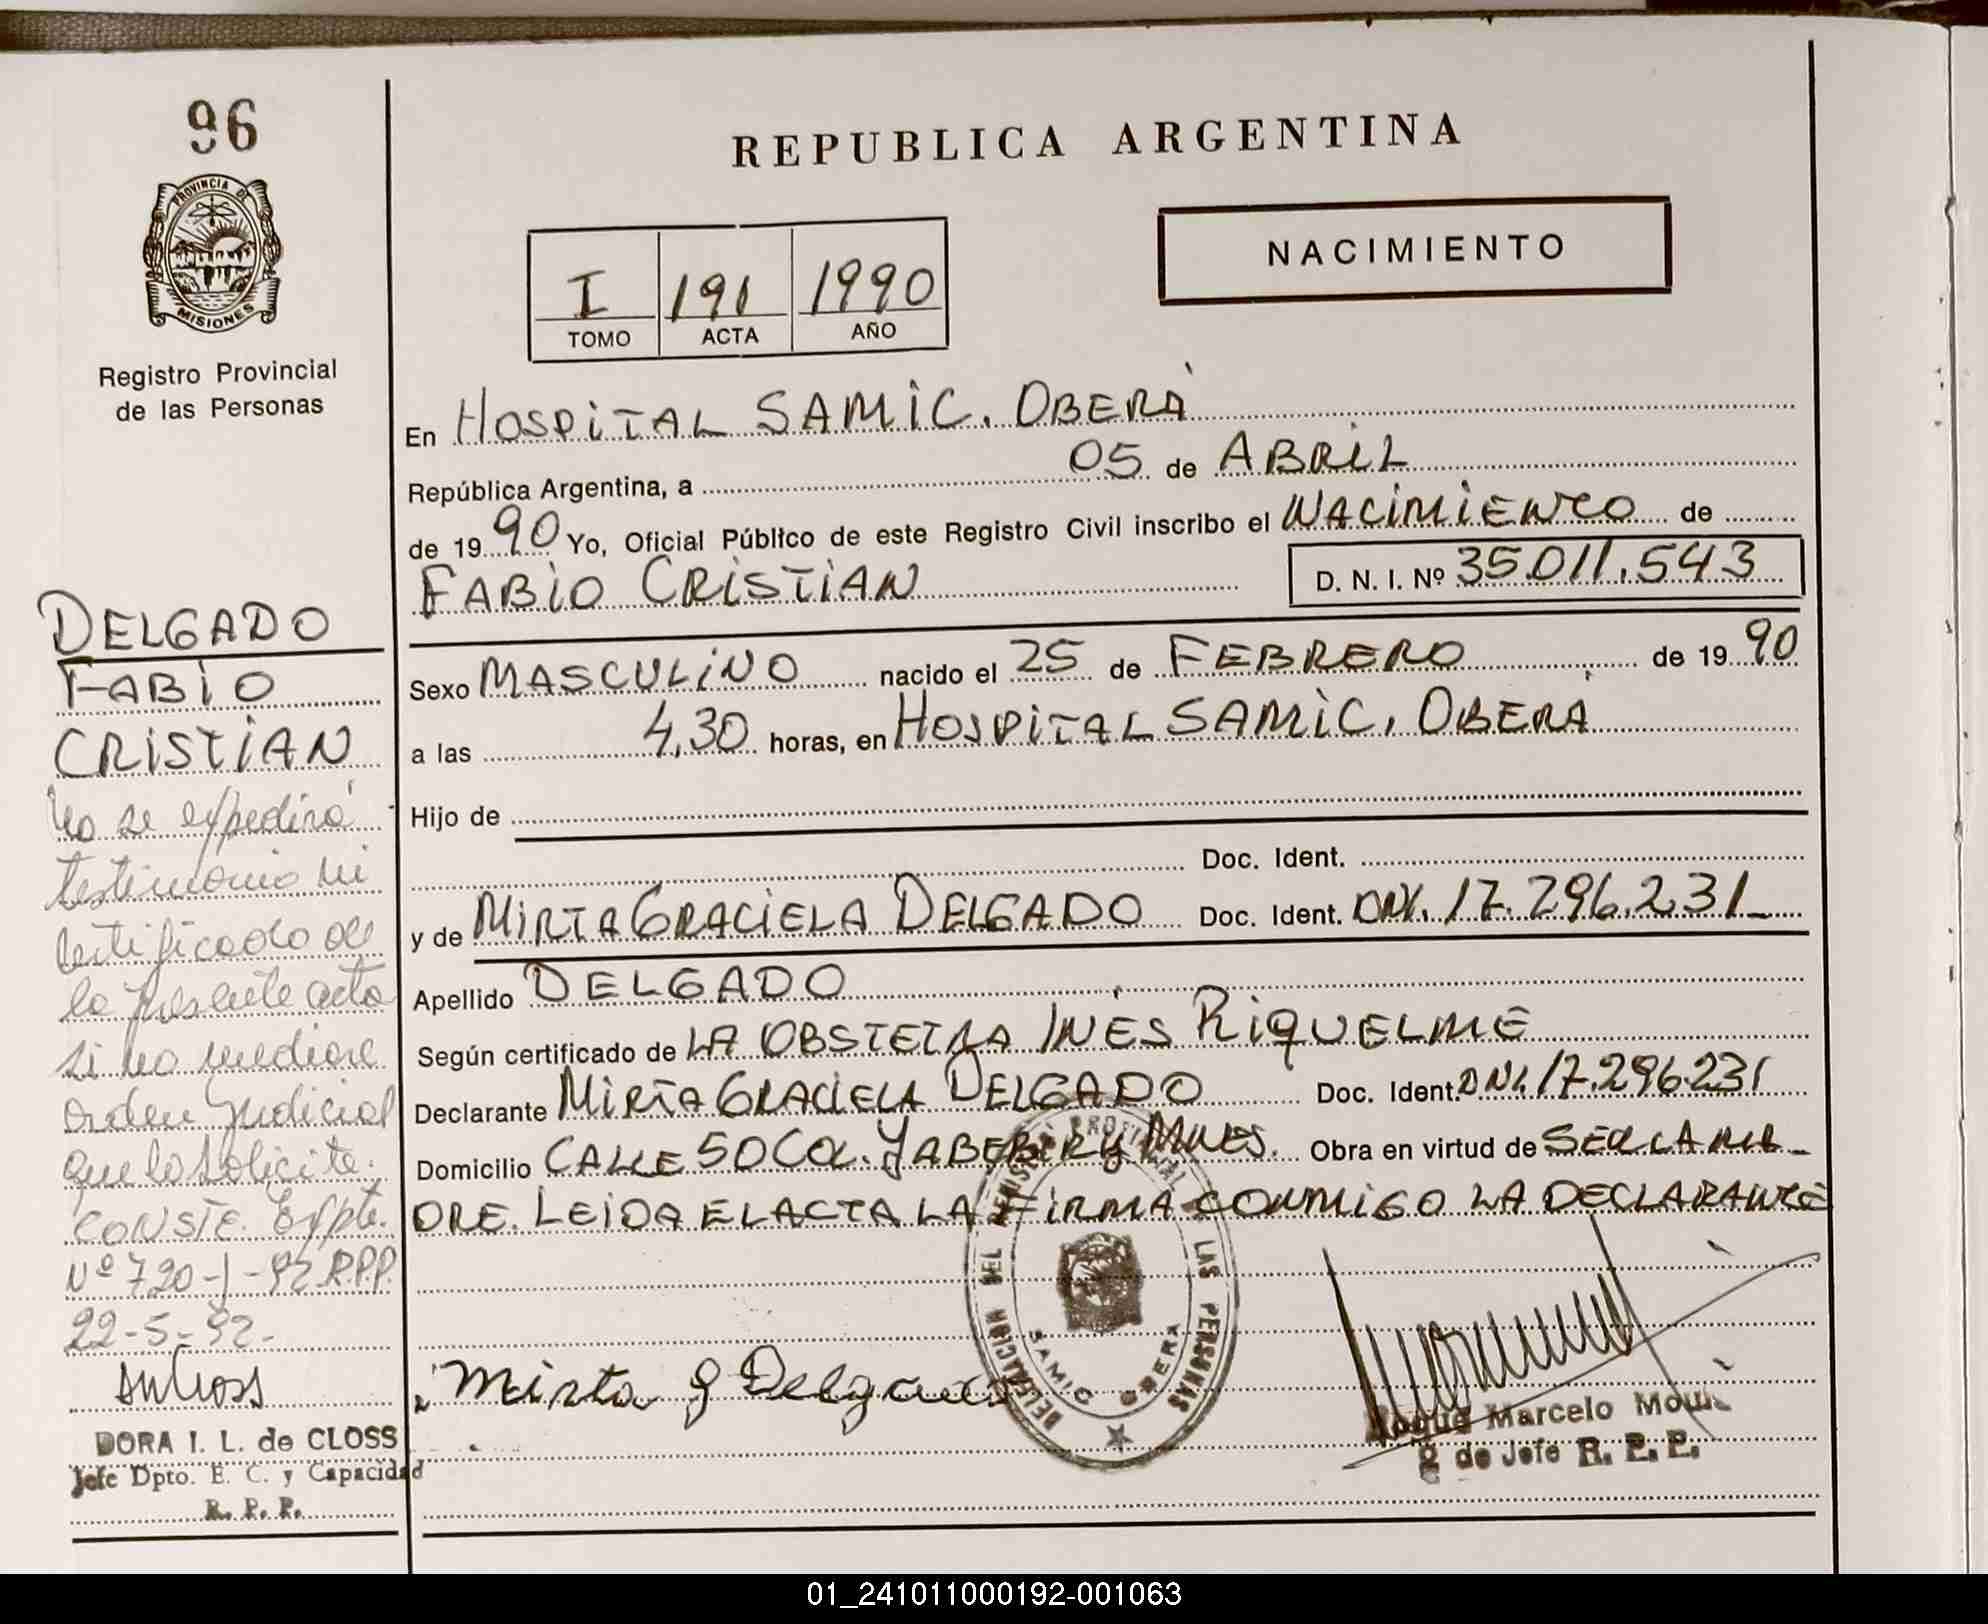 96
PROVINCIA DE
MISIONES
Registro Provincial
de las Personas
DELGADO
FABIO
CRISTIAN
No se expedirá
testimonio ni
certificado de
la presente acta
si no mediare
orden Judicial
que lo solicite.
CONSTE. Expte.
Nº 720-J-92 R.P.P.
22-5-92.
DORA I. L. de CLOSS
Jefe Dpto. E. C. y Capacidad
R. P. P.
REPUBLICA ARGENTINA
NACIMIENTO
I 191 1990
TOMO ACTA AÑO
En HOSPITAL SAMIC. OBERÁ
República Argentina, a 05 de ABRIL
de 1990 Yo, Oficial Público de este Registro Civil inscribo el NACIMIENTO de
FABIO CRISTIAN D. N. I. Nº 35.011.543
Sexo MASCULINO nacido el 25 de FEBRERO de 1990
a las 4,30 horas, en HOSPITAL SAMIC, OBERÁ
Hijo de
Doc. Ident.
y de MIRTA GRACIELA DELGADO Doc. Ident. DNI. 17.296.231_
Apellido DELGADO
Según certificado de LA OBSTETRA INÉS RIQUELME
Declarante MIRTA GRACIELA DELGADO Doc. Ident. DNI. 17.296.231
Domicilio CALLE 50 COL. YABEBIRY MNES. Obra en virtud de SER LA MA_
DRE. LEIDA EL ACTA LA FIRMA CONMIGO LA DECLARANTE
DELEGACION DEL REGISTRO PROVINCIAL DE LAS PERSONAS
SAMIC OBERA
Mirta G Delgado
Roque Marcelo
de Jefe R. P. P.
01_241011000192-001063